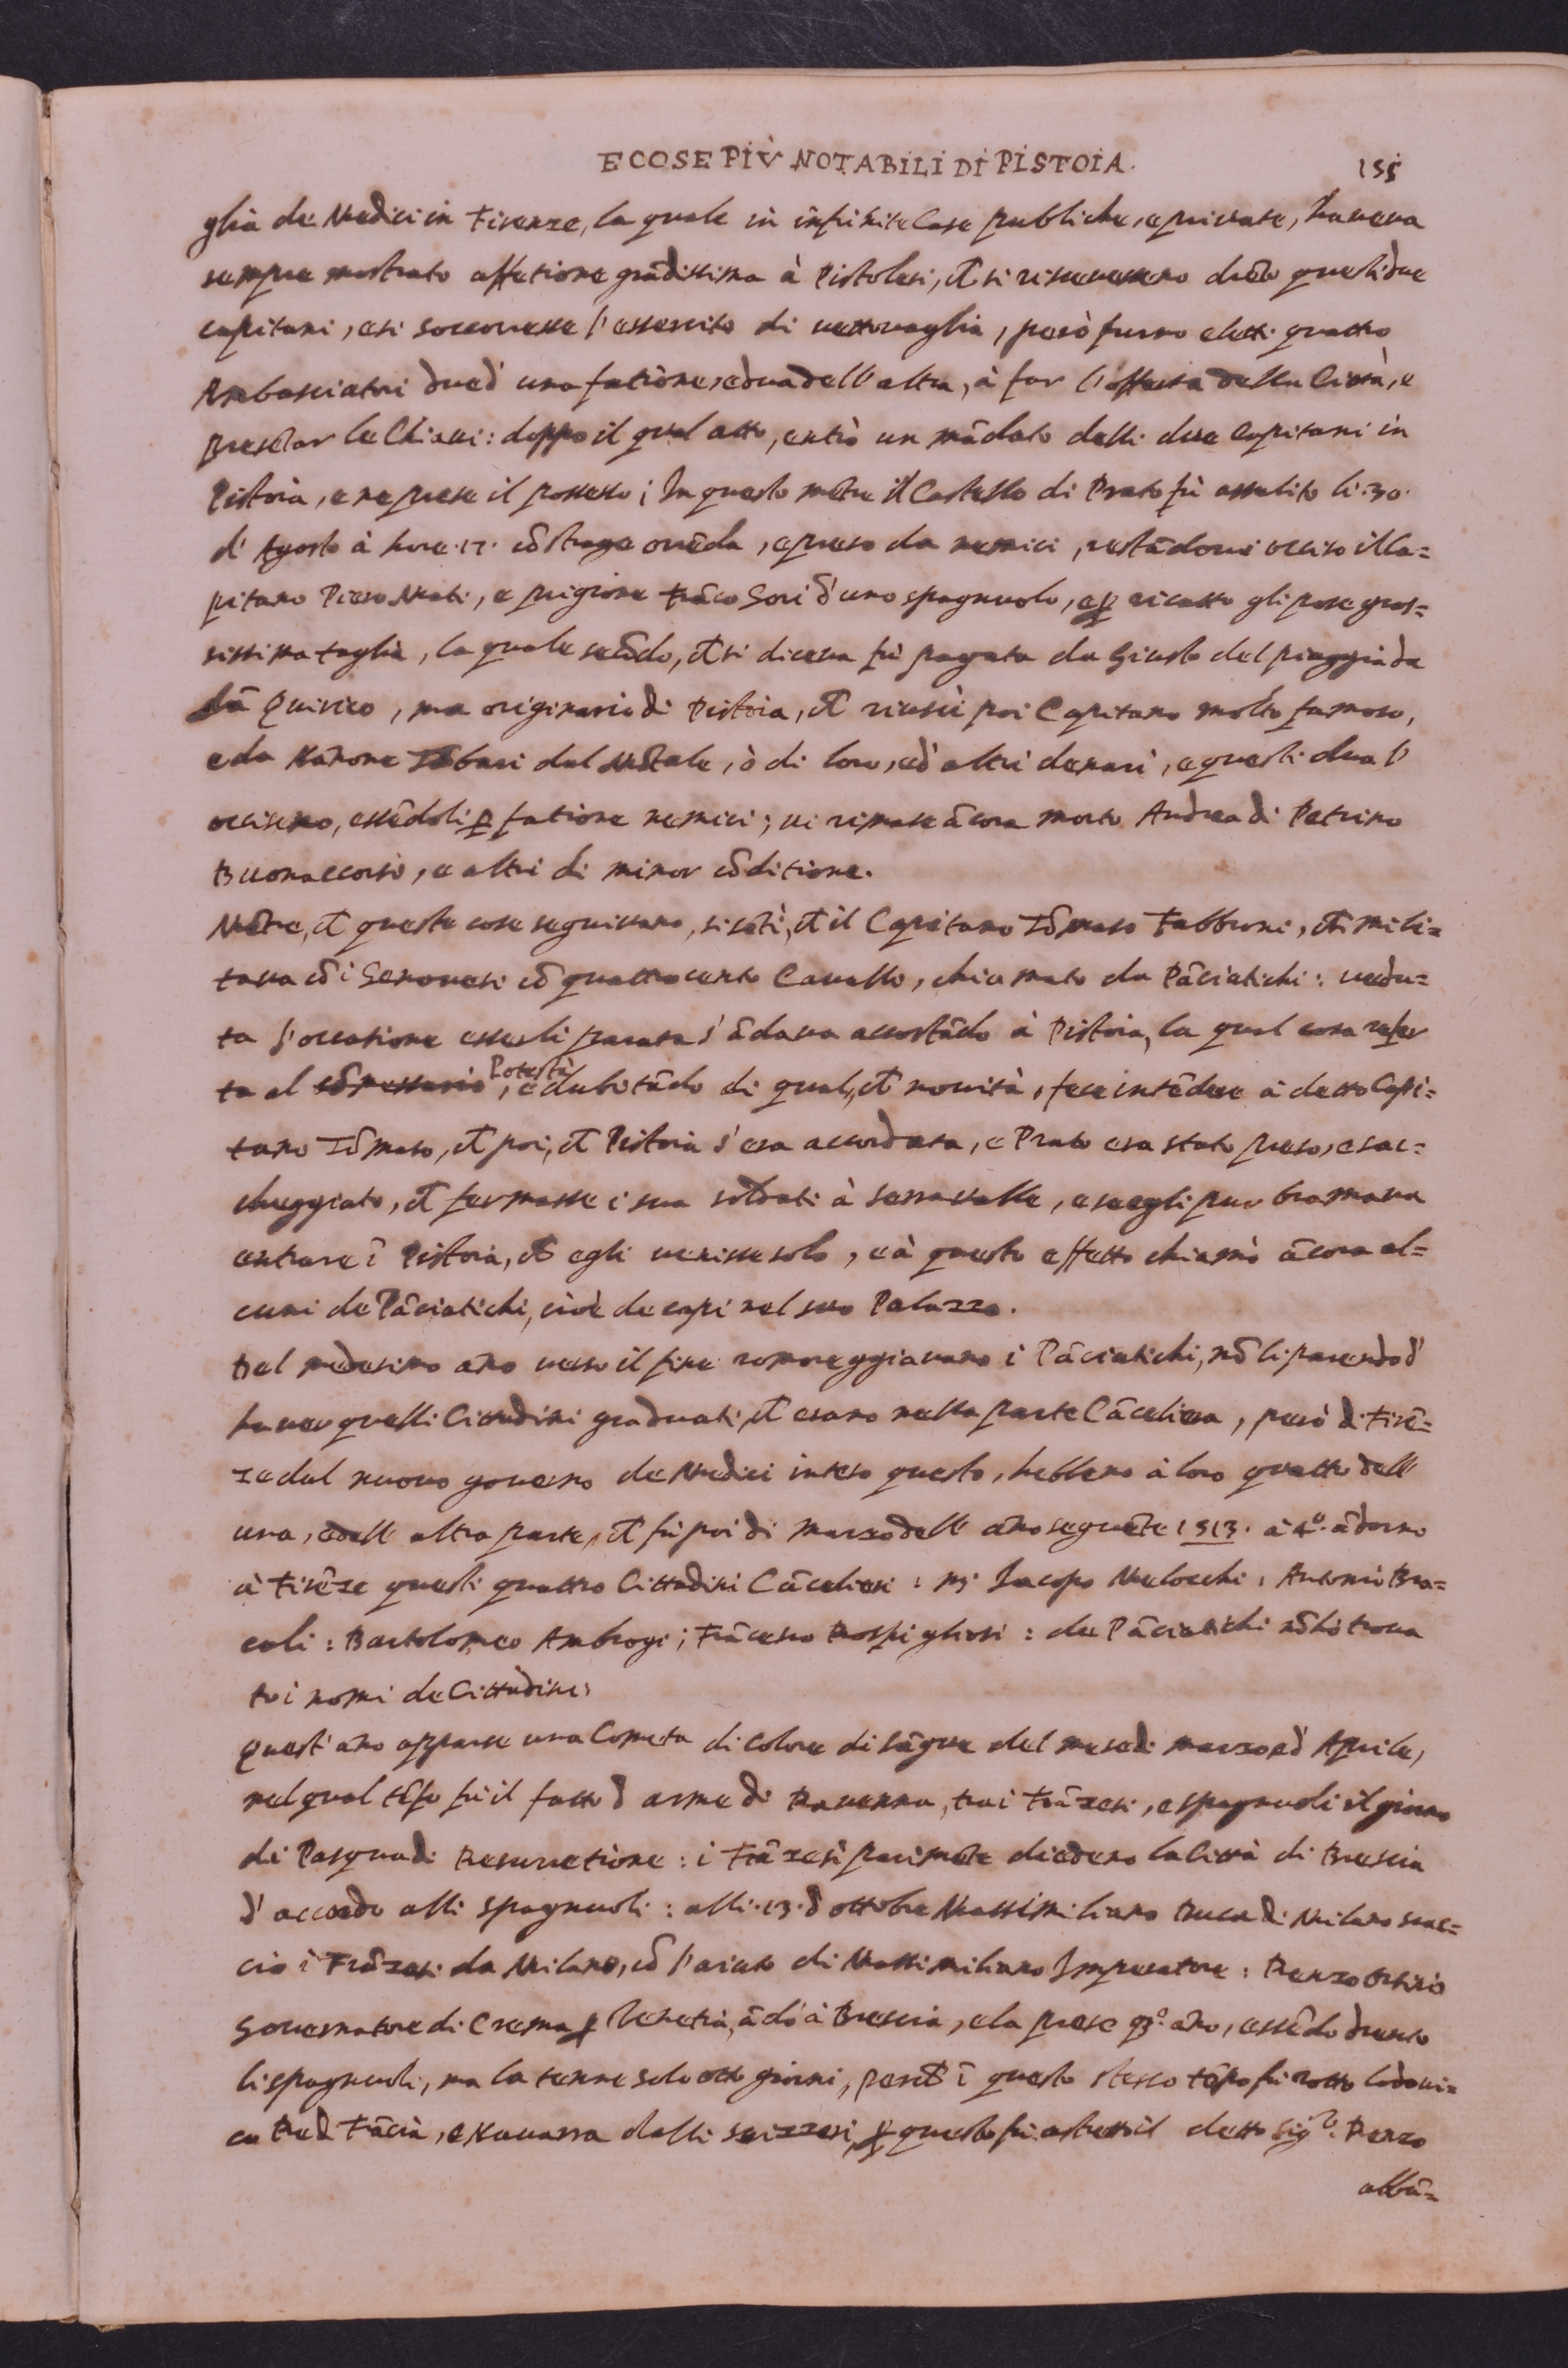 E COSE PIÙ NOTABILI DI PISTOIA. 155
glia de Medici in Firenze, la quale in infinite Case publiche, e private, haveva
sempre mostrato affetione grãdissima à Pistolesi, et si ricevessero drẽto questi due
capitani, e si soccorresse l'essercito di vettovaglia, però furno eletti quattro
Ambasciatori dued' una fatione, e dua dell'altra, à far l'offerta della Città, e
presẽtar le Chiavi: doppo il qual atto, entrò un mãdato delli due Capitani in
Pistoia, e ne prese il possesso; In questo mẽtre il Castello di Prato fù assalito li .30.
d'Agosto à hore .17. cõ strage orrẽda, e preso da nemici, restãdovi occiso il Ca=
pitano Piero Mati, e prigione Frãco Sori d'uno spagnuolo, e p ricatto gli pose gros=
sissima taglia, la quale secõdo, ch̃ si diceva fù pagata da Giusto del piaggia da
Sã Quirico, ma originario di Pistoia, ch̃ riuscì poi Capitano molto famoso,
e da Nanone Tõbari dal Mõtale, ò di loro, ed'altri denari, e questi dua l'
occisero, essẽdoli p fatione nemici; vi rimase ãcora morto Andrea di Petrino
Buonaccorsi, e altri di minor cõditione.
Mẽtre, ch̃ queste cose seguivano, si sẽtì, ch̃ il Capitano Tõmaso Fabbroni, ch̃ mili=
tava cõ i Genovesi cõ quattrocento Cavalli, chiamato da Pãciatichi: vedu=
ta l'occasione esserli parata s'ãdava accostãdo à Pistoia, la qual cosa refer
ta al cõmessario Potestà, e dubitãdo di qual, ch̃ novità, fece intẽdere à detto Capi=
tano Tõmaso, ch̃ poi, ch̃ Pistoia s'era accordata, e Prato era stato preso, e sac=
cheggiato, ch̃ fermasse i sua soldati à Serravalle, e se egli pur bramava
entrare ĩ Pistoia, ch̃ egli venisse solo, e à questo effetto chiamò ãcora al=
cuni de Pãciatichi, cioè de capi nel suo Palazzo.
Del medesimo año verso il fine romoreggiavano i Pãciatichi, nõ li parendo d'
haver quelli Cittadini graduati, ch̃ erano nella parte Cãceliera, però di Firẽ=
ze dal nuovo governo de Medici inteso questo, hebbero à loro quattro dell
una, e dell altra parte, ch̃ fù poi di Marzo dell año seguẽte 1513. à 4.º ãdorno
à Firẽze questi quattro Cittadini Cãcelieri: Mr Jacopo Melocchi, Antonio Bra=
coli: Bartolomeo Ambrogi; Frãcesco Rospigliosi: de Pãciatichi nõ hò trova
to i nomi de Cittadini.
Quest'año apparse una Cometa di colore di sãgue del mese di marzo ed Aprile,
nel qual tẽpo fù il fatto d'arme di Ravenna, tra i Frãzesi, e spagnuoli il giorno
di Pasqua di Resurretione: i Frãzesi parimẽte diedero la Città di Brescia
d'accordo alli spagnuoli: alli .13. d'ottobre Massimiliano Duca di Milano scac=
ciò i Frãzesi da Milano, cõ l'aiuto di Massimiliano Imperatore: Renzo Orsino
Governatore di Crema p Venetia, ãdò à Brescia, e la prese q.º año, essẽdo drento
li spagnuoli, ma la tenne solo otto giorni, perch̃ ĩ questo stesso tẽpo fù rotto Lodovi=
co Re di Frãcia, e Navarra dalli svizzeri, p questo fù astretto il detto Sig.re Renzo
abbã=